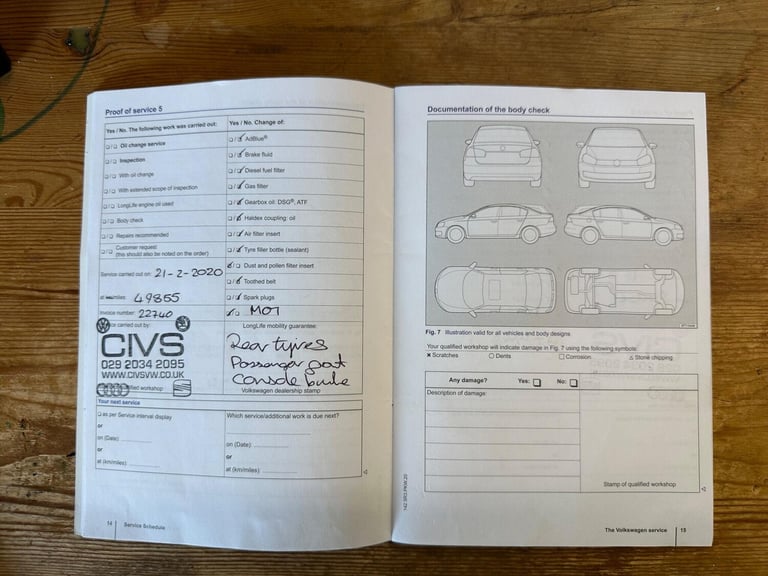 Proof of service 5
Yes / No. The following work was carried out:
☐/☐ Oil change service
☐/☐ Inspection
☐/☐ With oil change
☐/☐ With extended scope of inspection
☐/☐ LongLife engine oil used
☐/☐ Body check
☐/☐ Repairs recommended
☐/☐ Customer request
(this should also be noted on the order)
Service carried out on: 21-2-2020
at km/miles: 49855
Invoice number: 22740
Service carried out by:
CIVS
029 2034 2095
WWW.CIVSVW.CO.UK
workshop
Yes / No. Change of:
☐/☑ AdBlue®
☐/☑ Brake fluid
☐/☑ Diesel fuel filter
☐/☑ Gas filter
☐/☑ Gearbox oil: DSG®, ATF
☐/☑ Haldex coupling: oil
☐/☑ Air filter insert
☐/☑ Tyre filler bottle (sealant)
☑/☐ Dust and pollen filter insert
☐/☑ Toothed belt
☐/☑ Spark plugs
☑/☐ MOT
LongLife mobility guarantee:
Rear tyres
Console
Volkswagen dealership stamp
Your next service
☐ as per Service interval display
or
on (Date)
or
at (km/miles)
Which service/additional work is due next?
on (Date)
or
at (km/miles)
14 Service Schedule
Documentation of the body check
Fig. 7 Illustration valid for all vehicles and body designs
Your qualified workshop will indicate damage in Fig. 7 using the following symbols:
× Scratches ○ Dents □ Corrosion △ Stone chipping
Any damage? Yes: ☐ No: ☐
Description of damage:
Stamp of qualified workshop
The Volkswagen service 15